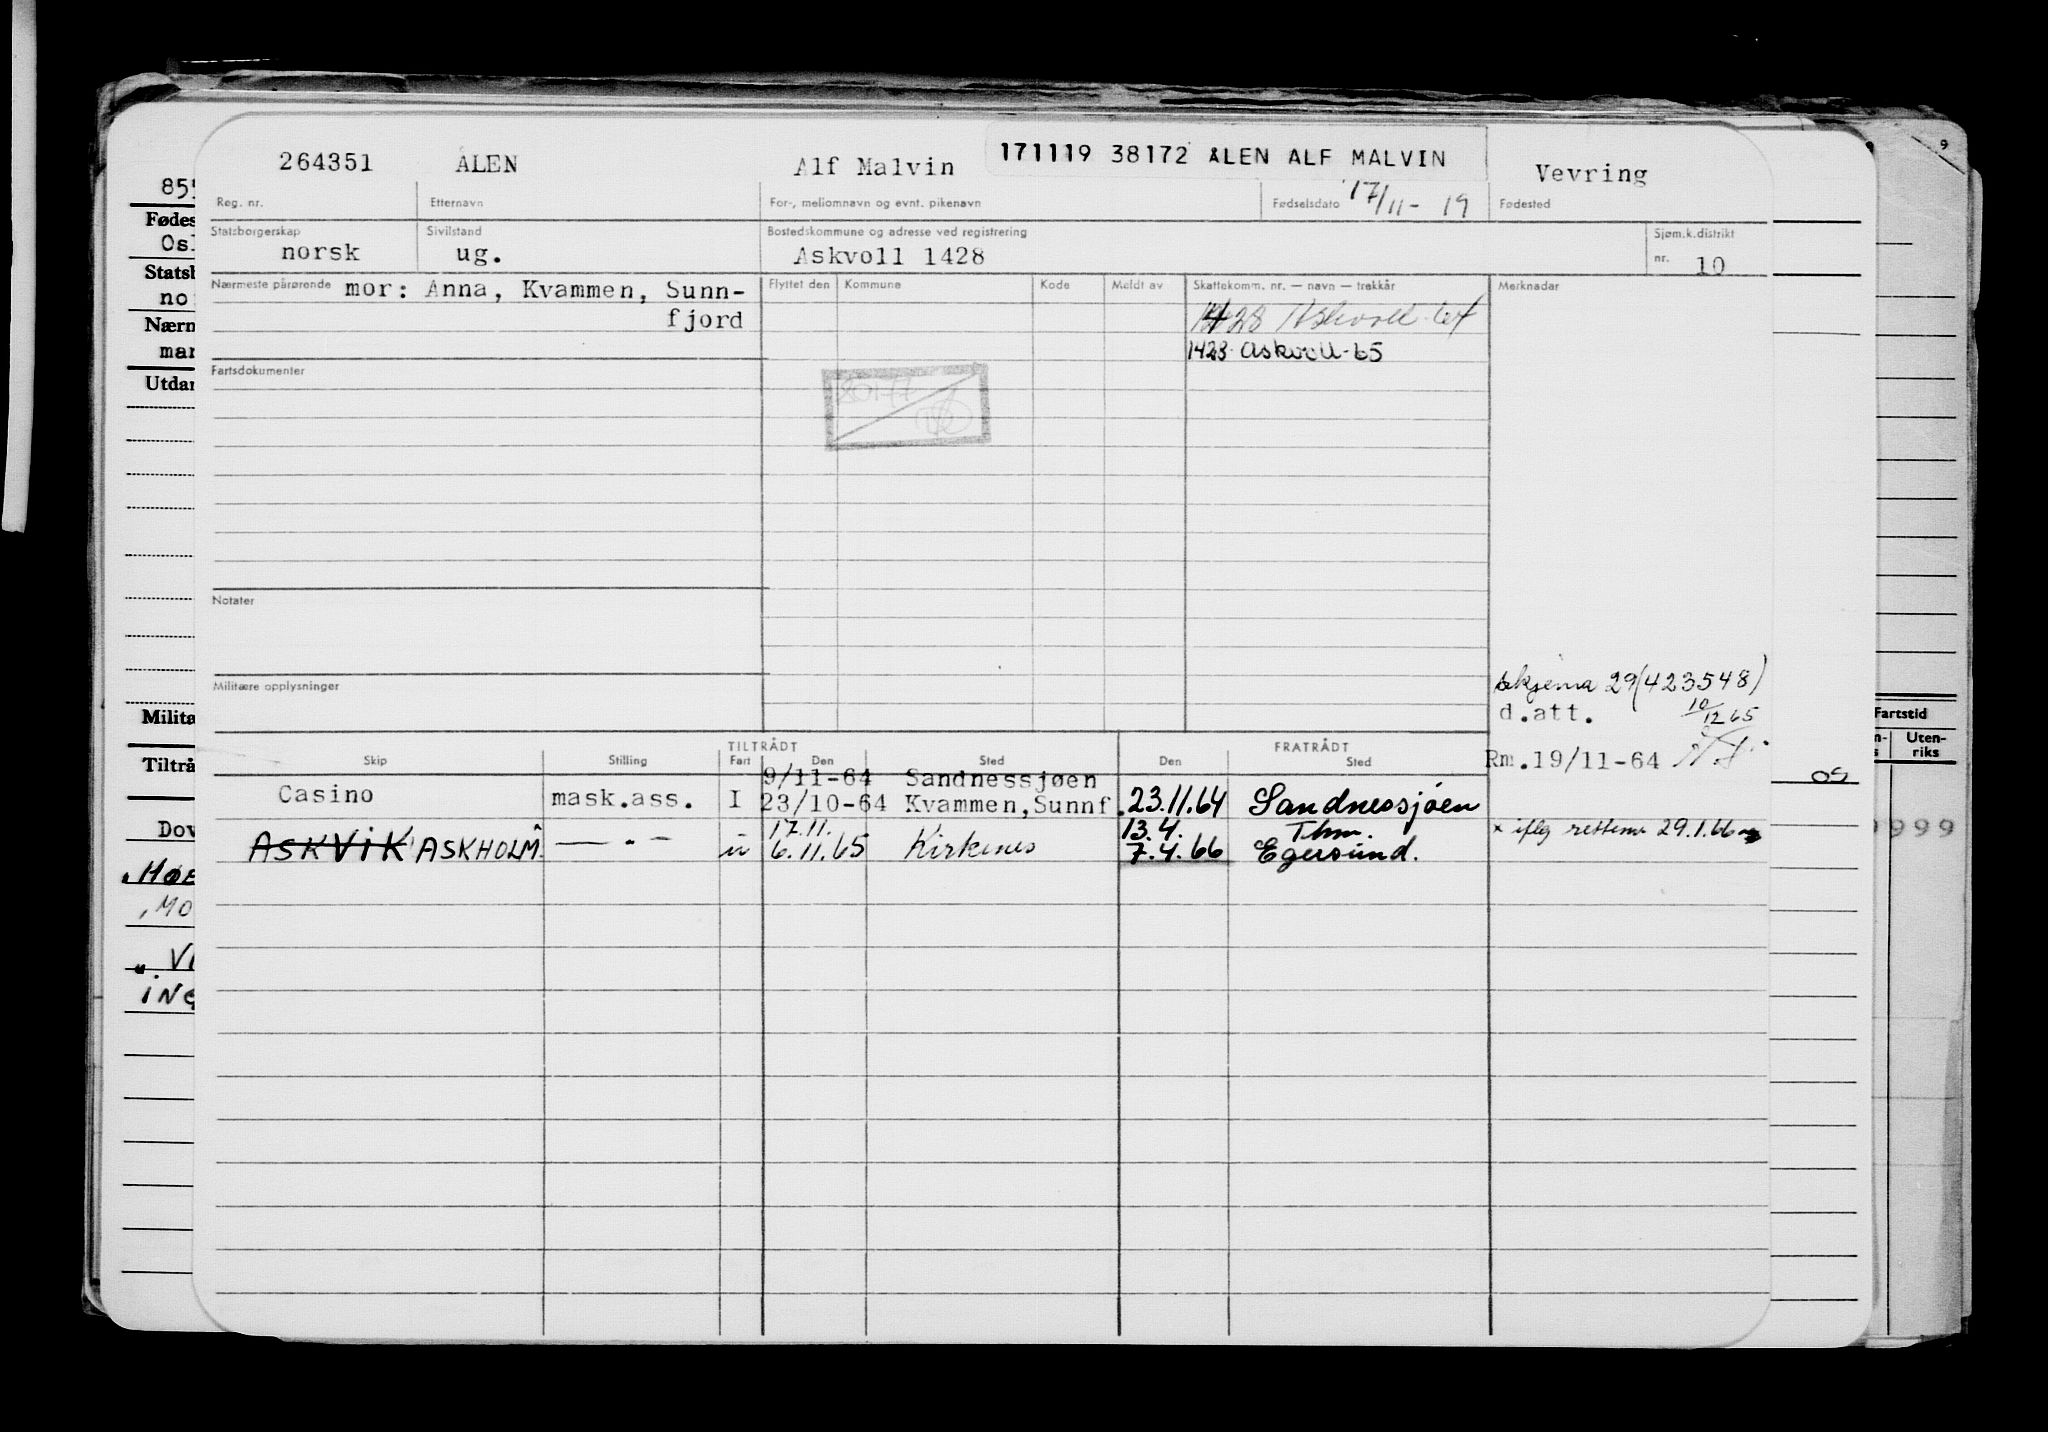 264351 ÅLEN Alf Malvin 171119 38172 ÅLEN ALF MALVIN Vevring
Reg. nr. Etternavn For-, mellomnavn og evnt. pikenavn Fødselsdato 17/11 - 19 Fødested
Statsborgerskap Sivilstand Bostedskommune og adresse ved registrering Sjøm.k.distrikt
norsk ug. Askvoll 1428 nr. 10
Nærmeste pårørende mor: Anna, Kvammen, Sunn- Flyttet den Kommune Kode Meldt av Skattekomm. nr. — navn — trekkår Merknader
fjord 1428 Askvoll
1428 Askvoll-65
Fartsdokumenter
Notater
Militære opplysninger
skjema 29(423548)
d.att. 10/12 65
Rm.19/11-64
TILTRÅDT FRATRÅDT
Skip Stilling Fart Den Sted Den Sted
9/11-64 Sandnessjøen
Casino mask.ass. I 23/10-64 Kvammen,Sunnf. 23.11.64 Sandnessjøen
17.11. 13.4. Thm.
ASKVIK ASKHOLM — " — u 6.11.65 Kirkenes 7.4.66 Egersund.
x iflg rettemn 29.1.66
855
Fødes
Osl
Statsb
nor
Nærm
mar
Utdan
Milita
Tiltrå
Dov
HØE
MO
VI
ING
9
Fartstid
Uten-
riks
09
9999